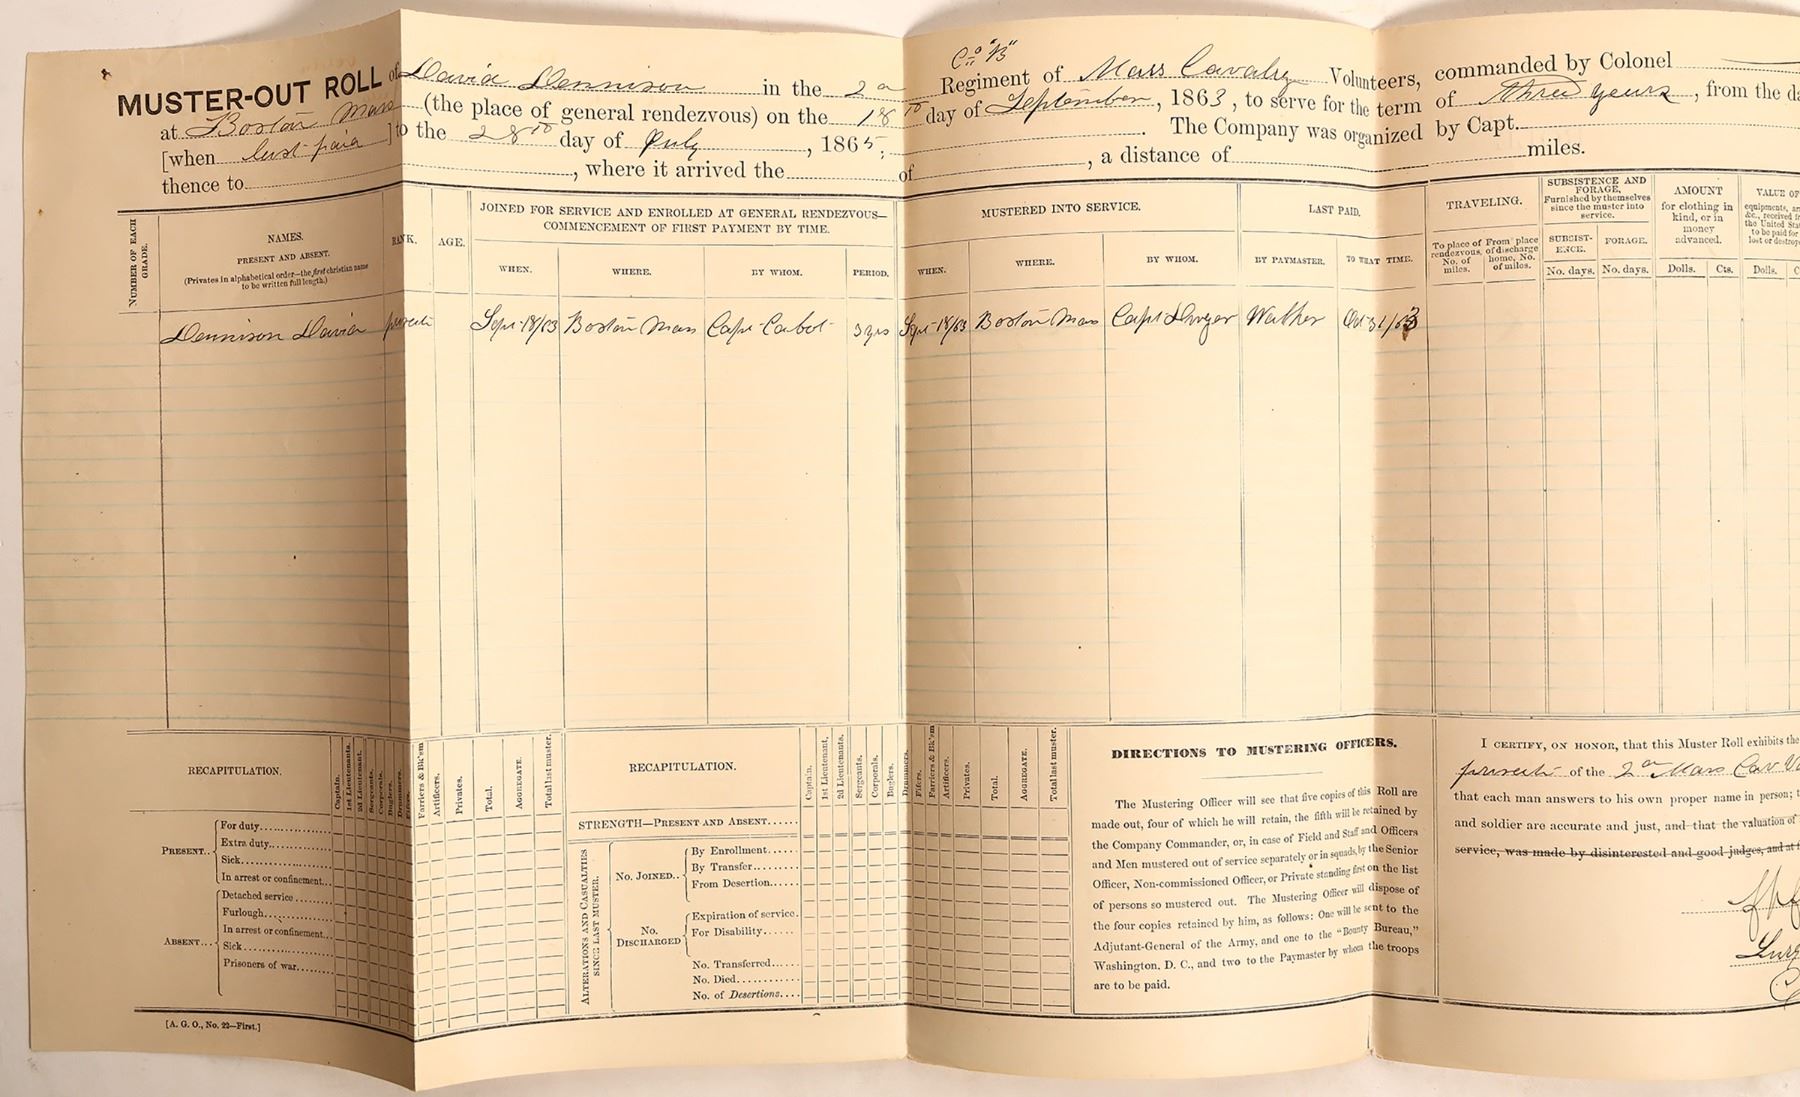 Co "B"
MUSTER-OUT ROLL of David Dennison in the 2d Regiment of Mass Cavalry Volunteers, commanded by Colonel
at Boston Mass (the place of general rendezvous) on the 18th day of September, 1863, to serve for the term of three years, from the
[when last paid] to the 28th day of July, 1865; The Company was organized by Capt.
thence to , where it arrived the of , a distance of miles.
NUMBER OF EACH GRADE.
NAMES.
PRESENT AND ABSENT.
(Privates in alphabetical order—the first christian name to be written full length.)
RANK.
AGE.
JOINED FOR SERVICE AND ENROLLED AT GENERAL RENDEZVOUS—
COMMENCEMENT OF FIRST PAYMENT BY TIME.
WHEN. WHERE. BY WHOM. PERIOD.
MUSTERED INTO SERVICE.
WHEN. WHERE. BY WHOM.
LAST PAID.
BY PAYMASTER. TO WHAT TIME.
TRAVELING.
To place of rendezvous, No. of miles.
From place of discharge home, No. of miles.
SUBSISTENCE AND FORAGE,
Furnished by themselves since the muster into service.
SUBSIST-ENCE. FORAGE.
No. days. No. days.
AMOUNT
for clothing in kind, or in money advanced.
Dolls. Cts.
VALUE OF
equipments,
&c., received
the United
to be paid for
lost or
Dolls.
Dennison David private Sept 18/63 Boston Mass Capt Cabot 3 yrs Sept 18/63 Boston Mass Capt Walker Oct 31/63
RECAPITULATION.
Captain.
1st Lieutenants.
2d Lieutenant.
Sergeants.
Corporals.
Buglers.
Drummers.
Fifers.
Farriers & Bk'sm
Artificers.
Privates.
Total.
AGGREGATE.
Total last muster.
PRESENT..
For duty
Extra duty
Sick
In arrest or confinement
ABSENT...
Detached service
Furlough
In arrest or confinement
Sick
Prisoners of war
[A. G. O., No. 22—First.]
RECAPITULATION.
Captain.
1st Lieutenant,
2d Lieutenants.
Sergeants.
Corporals.
Buglers.
Drummers.
Fifers.
Farriers & Bk'sm
Artificers.
Privates.
Total.
AGGREGATE.
Total last muster.
STRENGTH—PRESENT AND ABSENT
ALTERATIONS AND CASUALTIES SINCE LAST MUSTER.
No. JOINED..
By Enrollment
By Transfer
From Desertion
No. DISCHARGED
Expiration of service.
For Disability
No. Transferred
No. Died
No. of Desertions
DIRECTIONS TO MUSTERING OFFICERS.
The Mustering Officer will see that five copies of this Roll are
made out, four of which he will retain, the fifth will be retained by
the Company Commander, or, in case of Field and Staff and Officers
and Men mustered out of service separately or in squads, by the Senior
Officer, Non-commissioned Officer, or Private standing first on the list
of persons so mustered out. The Mustering Officer will dispose of
the four copies retained by him, as follows: One will be sent to the
Adjutant-General of the Army, and one to the "Bounty Bureau,"
Washington, D. C., and two to the Paymaster by whom the troops
are to be paid.
I CERTIFY, ON HONOR, that this Muster Roll exhibits the
private of the 2d Mass Cav
that each man answers to his own proper name in person;
and soldier are accurate and just, and that the valuation of
service, was made by disinterested and good judges, and at